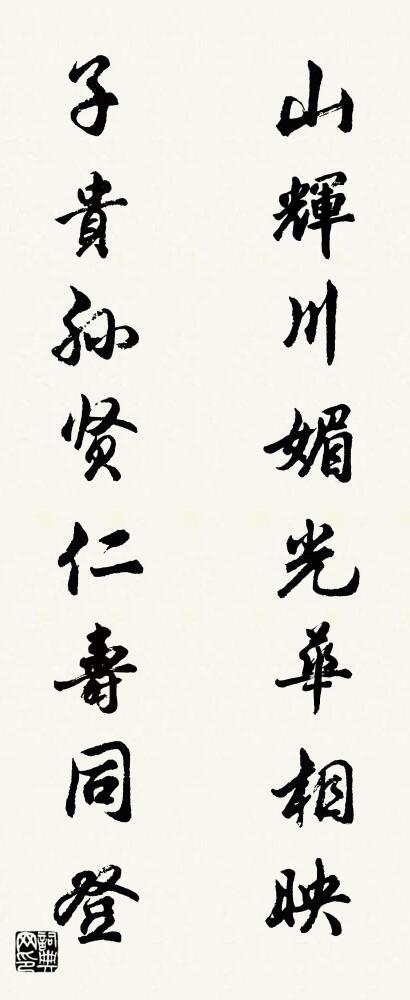 山輝川媚光華相映
子貴孙贤仁壽同登
詞典网印